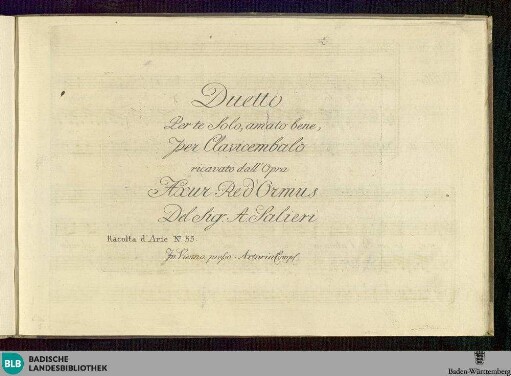 Duetto
Per te Solo, amato bene,
per Clavicembalo
ricavato dall'Opra
Axur Re d'Ormus
Del Sig. A. Salieri
Racolta d'Arie N. 53
In Vienna presso Artaria Comp.
BLB BADISCHE
LANDESBIBLIOTHEK
Baden-Württemberg